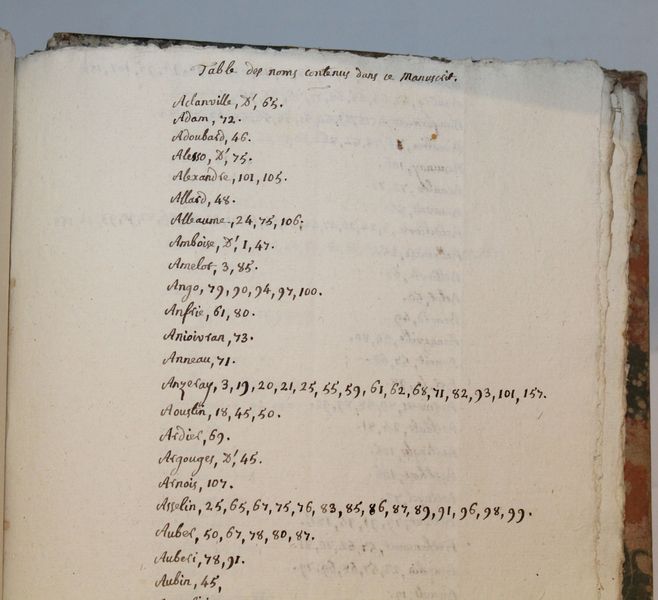 Table des noms contenus dans ce Manuscrit.
Aclanville, D', 65.
Adam, 72.
Adoubard, 46.
Alesso, D', 75.
Alexandre, 101, 105.
Allard, 48.
Alleaume, 24, 75, 106.
Amboise, D', 1, 47.
Amelot, 3, 85.
Ango, 79, 90, 94, 97, 100.
Anfrie, 61, 80.
73.
Anneau, 71.
Anzeray, 3, 19, 20, 21, 25, 55, 59, 61, 62, 68, 71, 82, 93, 101, 157.
Aoustin, 18, 45, 50.
Ardier, 69.
Argouges, D', 45.
Arnois, 107.
Asselin, 25, 65, 67, 75, 76, 83, 85, 86, 87, 89, 91, 96, 98, 99.
Auber, 50, 67, 78, 80, 87.
Auberi, 78, 91.
Aubin, 45,